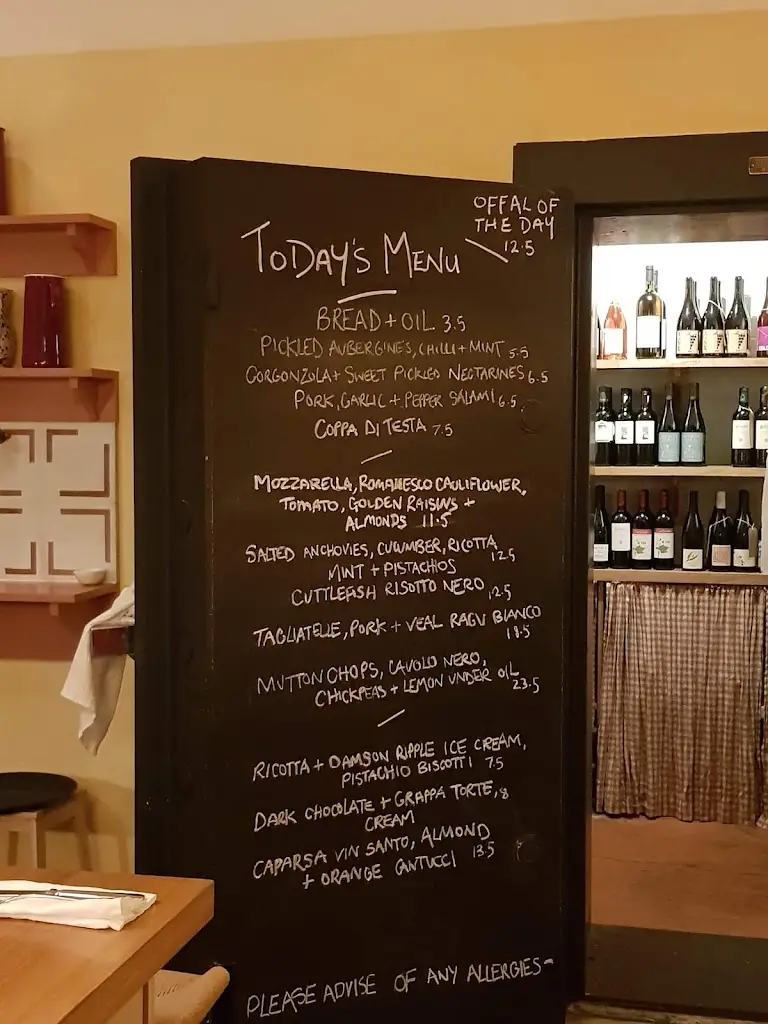 OFFAL OF
THE DAY
12.5
TODAY'S MENU
BREAD + OIL 3.5
PICKLED AUBERGINES, CHILLI + MINT 5.5
GORGONZOLA + SWEET PICKLED NECTARINES 6.5
PORK, GARLIC + PEPPER SALAMI 6.5
COPPA DI TESTA 7.5
MOZZARELLA, ROMANESCO CAULIFLOWER,
TOMATO, GOLDEN RAISINS +
ALMONDS 11.5
SALTED ANCHOVIES, CUCUMBER, RICOTTA,
MINT + PISTACHIOS 12.5
CUTTLEFISH RISOTTO NERO 12.5
TAGLIATELLE, PORK + VEAL RAGU BIANCO
18.5
MUTTON CHOPS, CAVOLO NERO,
CHICKPEAS + LEMON UNDER OIL 23.5
RICOTTA + DAMSON RIPPLE ICE CREAM,
PISTACHIO BISCOTTI 7.5
DARK CHOCOLATE + GRAPPA TORTE, 8
CREAM
CAPARSA VIN SANTO, ALMOND
+ ORANGE CANTUCCI 13.5
PLEASE ADVISE OF ANY ALLERGIES-